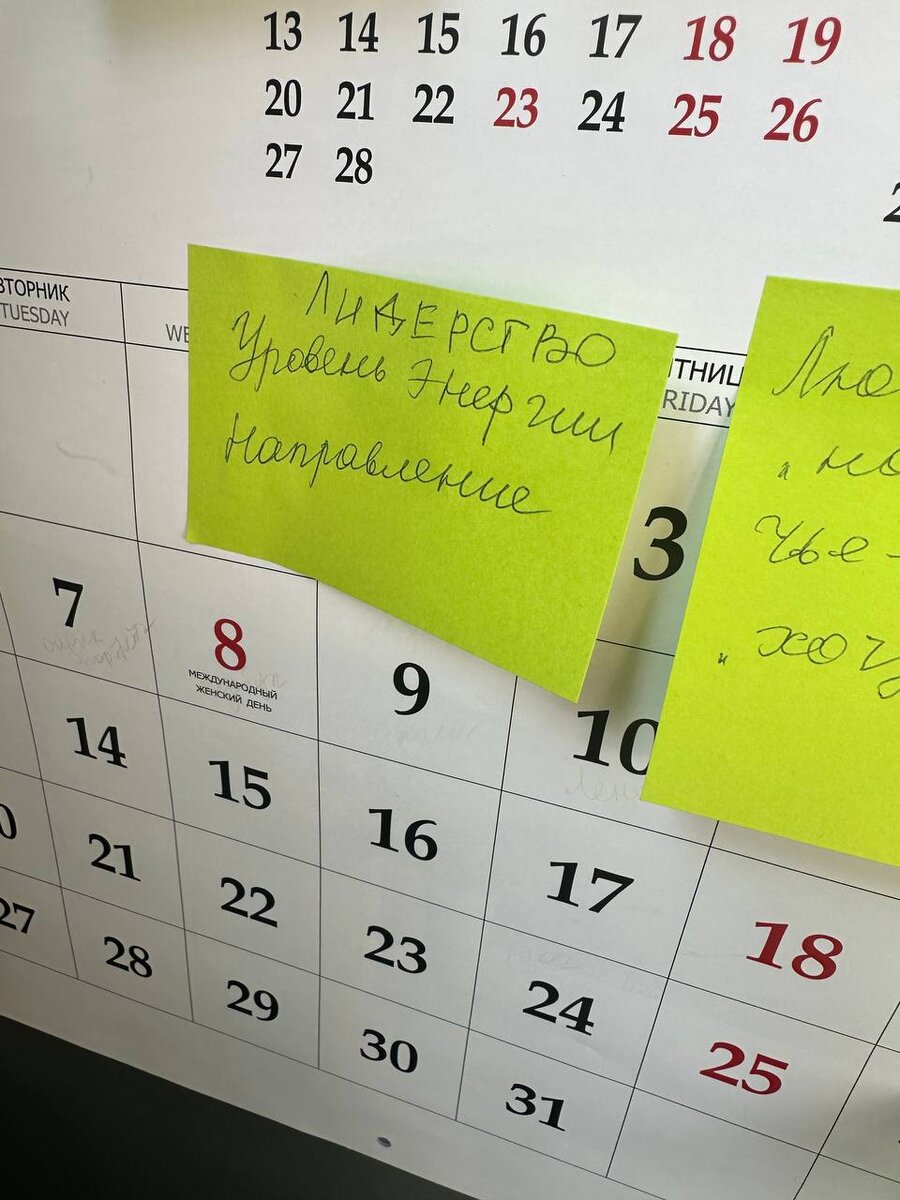 13 14 15 16 17 18 19
20 21 22 23 24 25 26
27 28
ВТОРНИК
TUESDAY
WE
ЛИДЕРСТВО
Уровень Энергии
Направление
ЯТНИЦ
RIDAY
Лю
"но
Чье-
"хочу
3
7 8 9 10
МЕЖДУНАРОДНЫЙ
ЖЕНСКИЙ ДЕНЬ
14 15 16 17 18
21 22 23 24 25
27 28 29 30 31